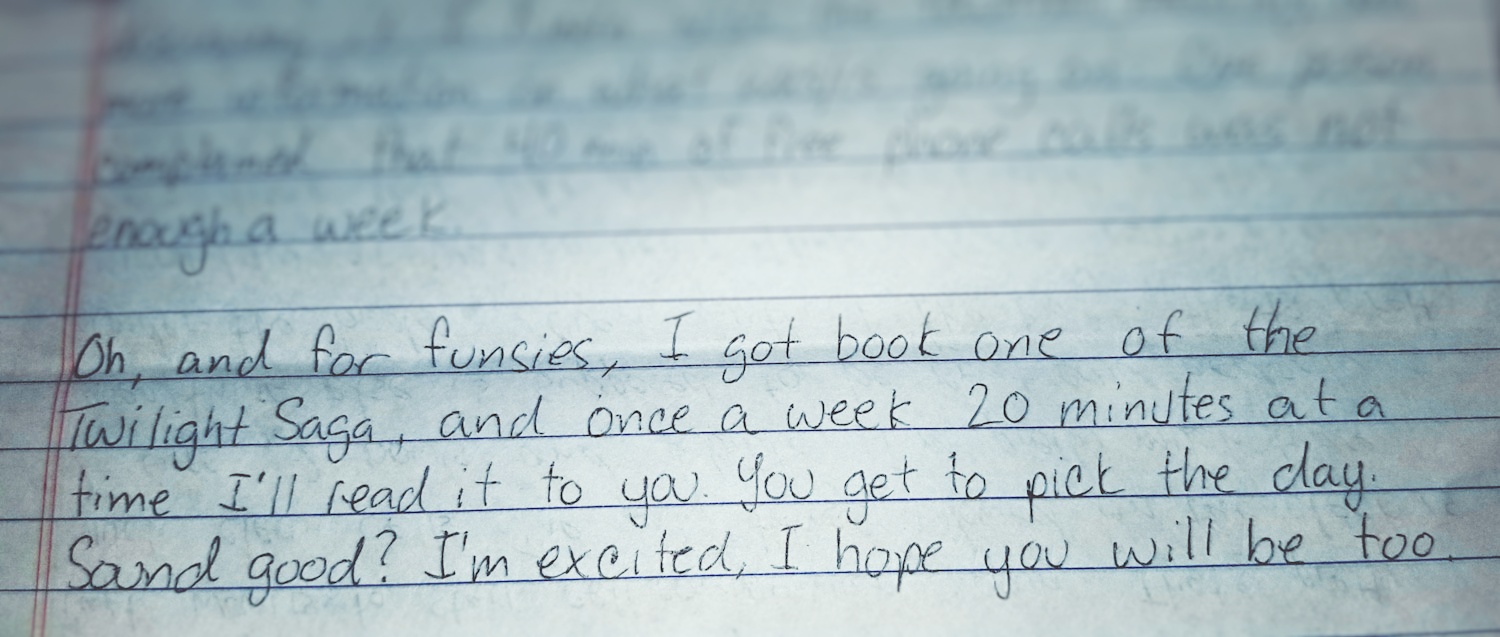 more information on what we're going on. One person
complained that 40 min of free phone calls was not
enough a week.
Oh, and for funsies, I got book one of the
Twilight Saga, and once a week 20 minutes at a
time I'll read it to you. You get to pick the day.
Sound good? I'm excited, I hope you will be too.